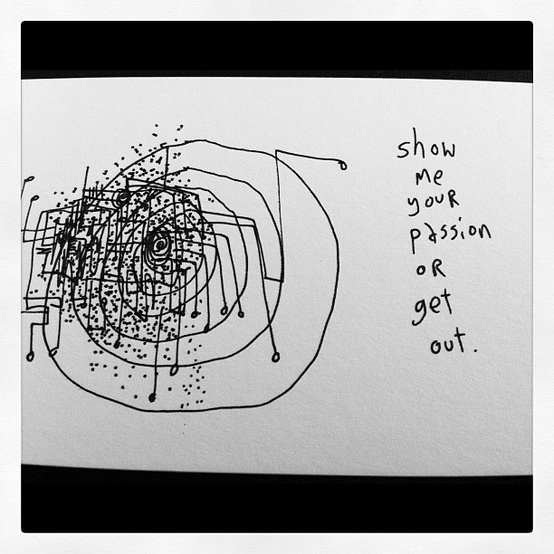 show
me
your
passion
or
get
out.